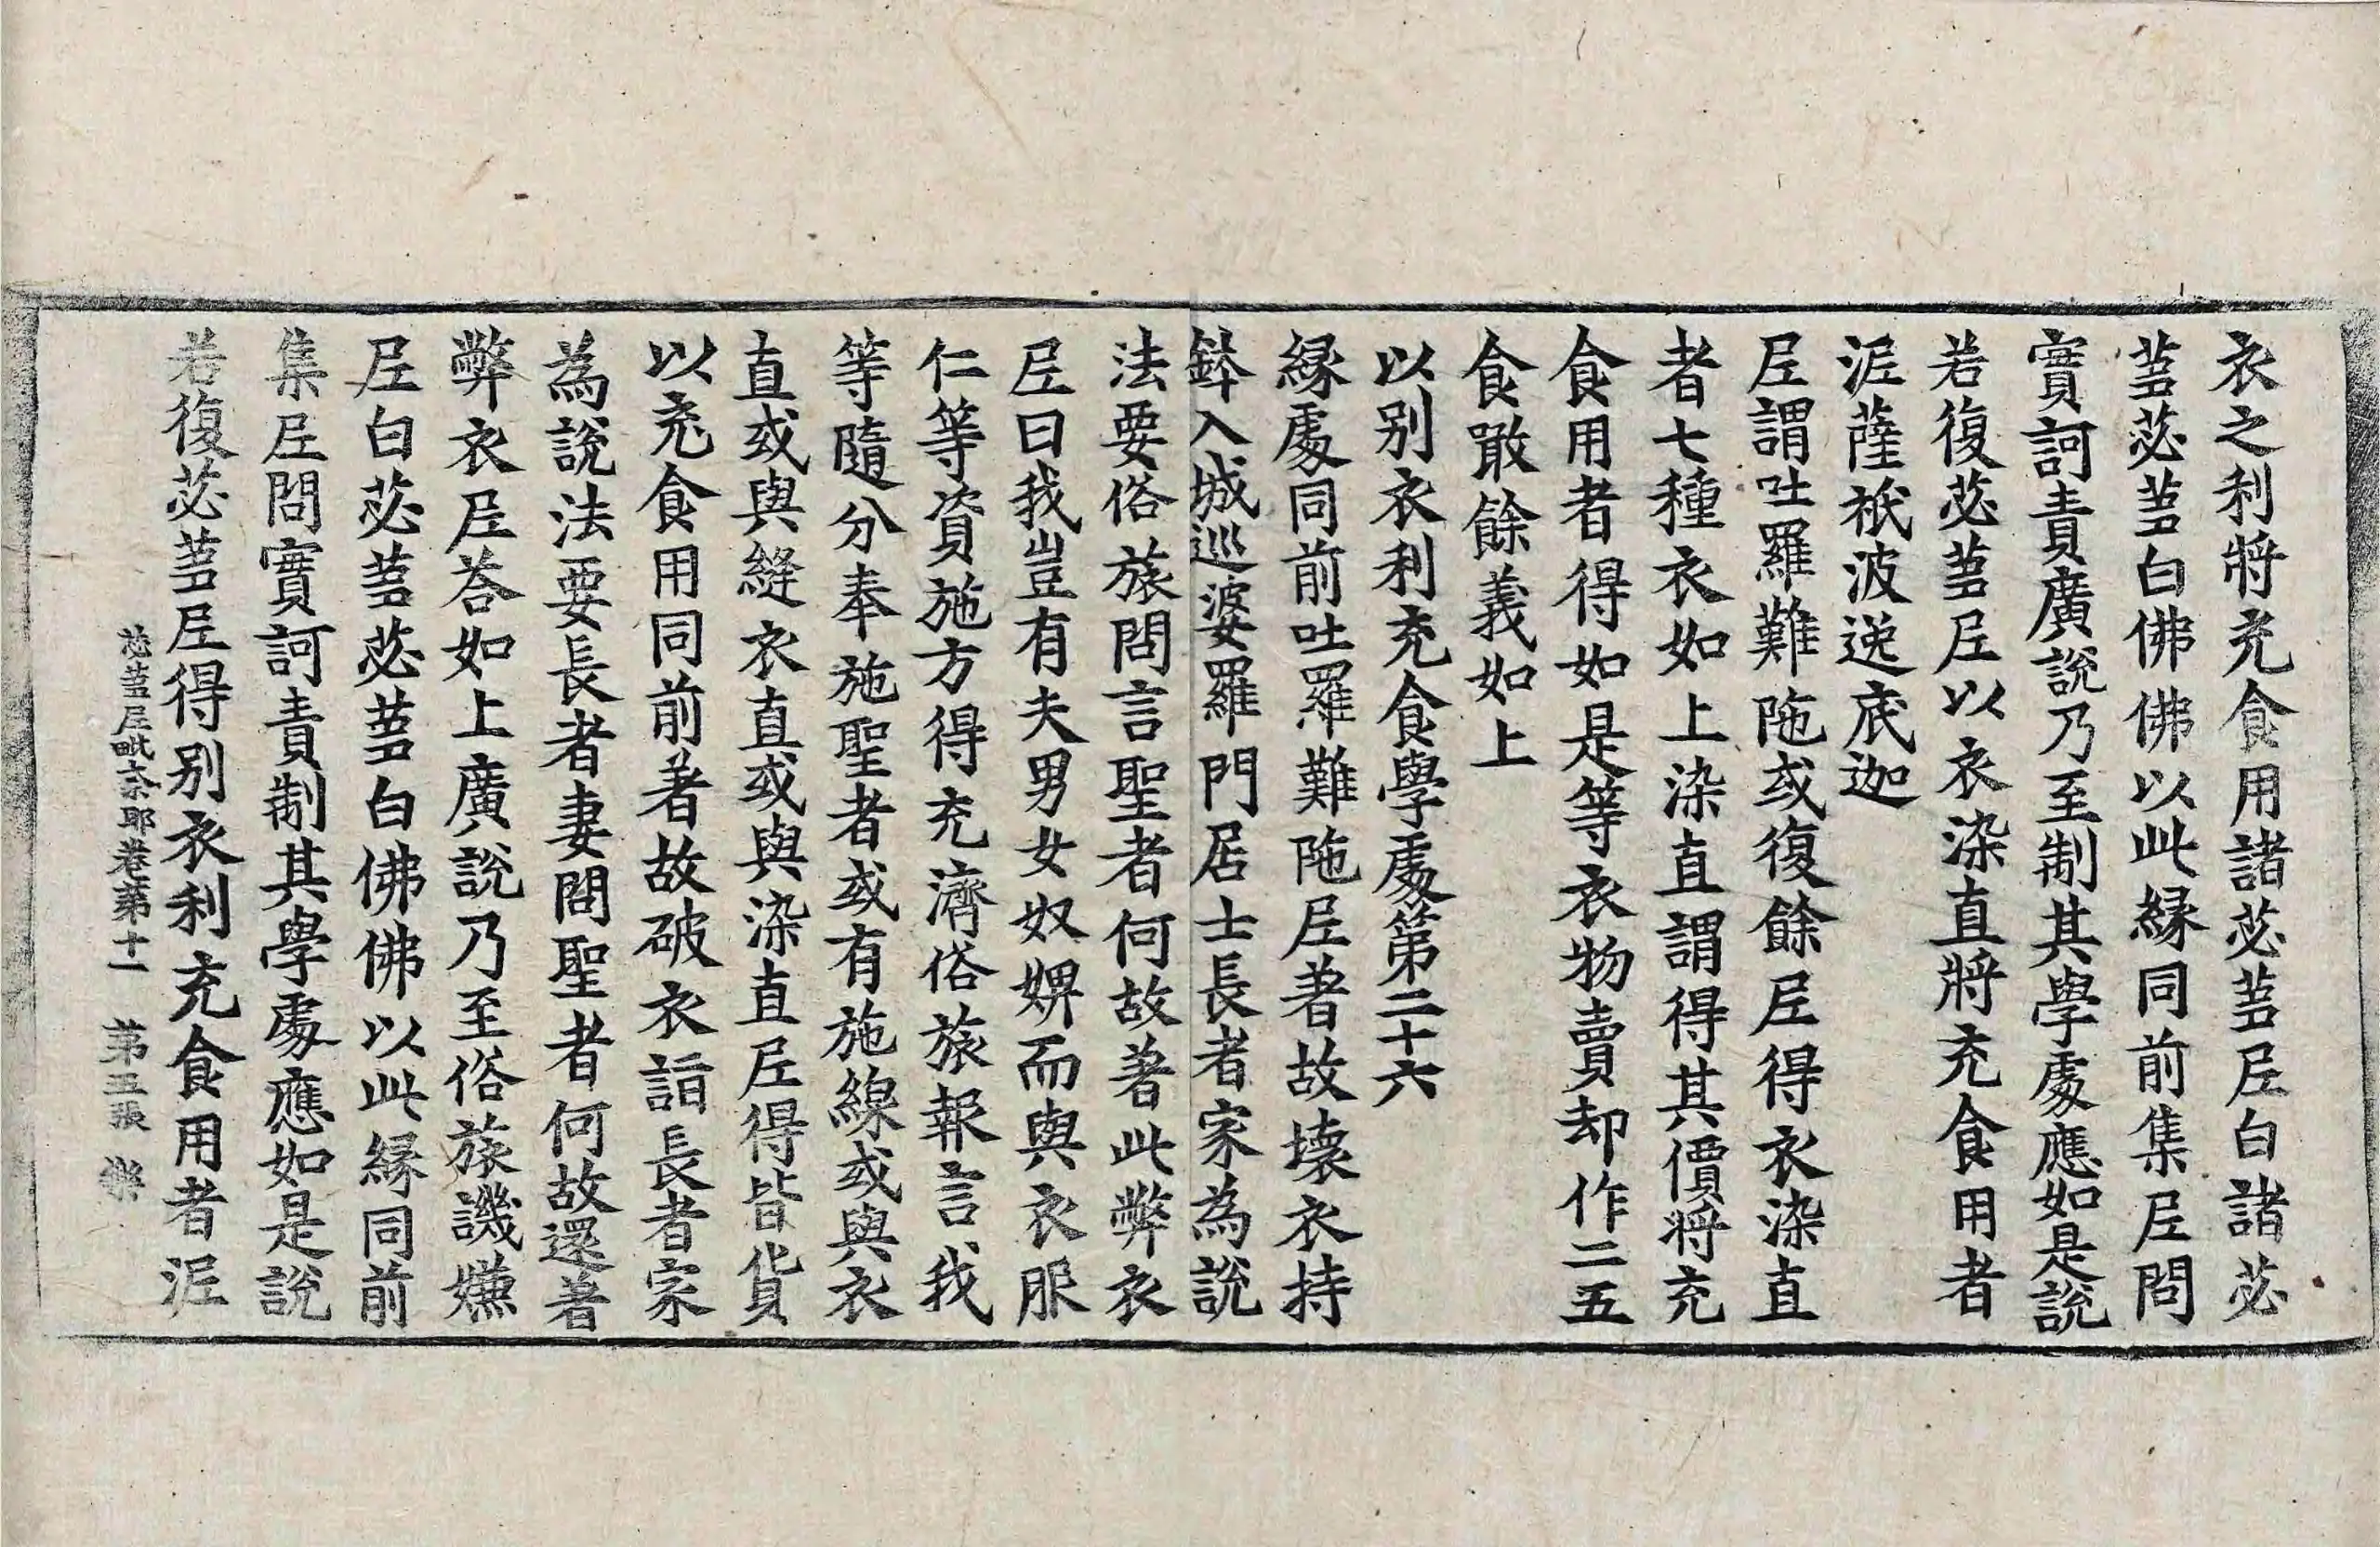 衣之利將充食用諸苾蒭尼白諸苾
蒭苾蒭白佛佛以此緣同前集尼問
實訶責廣說乃至制其學處應如是說
若復苾蒭尼以衣染直將充食用者
泥薩祇波逆底迦
尼謂吐羅難陁或復餘尼得衣染直
者七種衣如上染直謂得其價將充
食用者得如是等衣物賣却作二五
食噉餘義如上
以別衣利充食學處第二十六
緣處同前吐羅難陁尼著故壞衣持
鉢入城巡婆羅門居士長者家為說
法要俗旅問言聖者何故著此弊衣
尼曰我豈有夫男女奴婢而與衣服
仁等資施方得充濟俗旅報言我
等隨分奉施聖者或有施線或與衣
直或與縫衣直或與染直尼得皆貨
以充食用同前著故破衣詣長者家
為說法要長者妻問聖者何故還著
弊衣尼荅如上廣說乃至俗旅譏嫌
尼白苾蒭苾蒭白佛佛以此緣同前
集尼問實訶責制其學處應如是說
若復苾蒭尼得別衣利充食用者泥
苾蒭尼毗奈耶卷第十一 第五張 樂